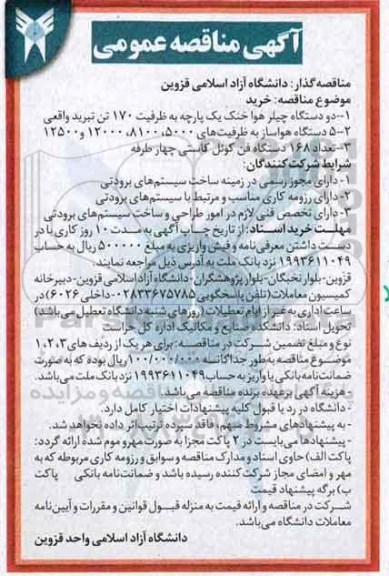 آگهی مناقصه عمومی
مناقصه‌گذار: دانشگاه آزاد اسلامی قزوین
موضوع مناقصه: خرید
۱-دو دستگاه چیلر هوا خنک یک پارچه به ظرفیت ۱۷۰ تن تبرید واقعی
۲-۵ دستگاه هواساز به ظرفیت‌های ۵۰۰۰، ۸۱۰۰، ۱۲۰۰۰ و ۱۲۵۰۰
۳-تعداد ۱۶۸ دستگاه فن کوئل کاستی چهار طرفه
شرایط شرکت کنندگان:
۱- دارای مجوز رسمی در زمینه ساخت سیستم‌های برودتی
۲- دارای رزومه کاری مناسب و مرتبط با سیستم‌های برودتی
۳- دارای تخصص فنی لازم در امور طراحی و ساخت سیستم‌های برودتی
مهلت خرید اسناد: از تاریخ چاپ آگهی به مدت ۱۰ روز کاری با در
دست داشتن معرفی نامه و فیش واریزی به مبلغ ۵۰۰۰۰۰ ریال به حساب
۱۹۹۳۶۱۱۰۴۹ نزد بانک ملت به آدرس ذیل مراجعه نمایند.
قزوین-بلوار نخبگان-بلوار پژوهشگران-دانشگاه آزاد اسلامی قزوین-دبیرخانه
کمیسیون معاملات (تلفن پاسخگویی ۰۲۸۳۳۶۷۵۷۸۵-داخلی ۶۰۲۶) در
ساعت اداری به غیر از ایام تعطیلات (روزهای شنبه دانشگاه تعطیل می‌باشد)
تحویل اسناد: دانشکده صنایع و مکانیک اداره کل حراست
نوع و مبلغ تضمین شرکت در مناقصه: برای هر یک از ردیف های ۱،۲،۳
موضوع مناقصه به‌طور جداگانه ۱۰۰/۰۰۰/۰۰۰ ریال بوده که به صورت
ضمانت‌نامه بانکی یا واریز به حساب ۱۹۹۳۶۱۱۰۴۹ نزد بانک ملت می‌باشد.
- هزینه آگهی برعهده برنده مناقصه می‌باشد.
- دانشگاه در رد یا قبول کلیه پیشنهادات اختیار کامل دارد.
- به پیشنهادهای مشروط، مبهم، فاقد سپرده ترتیب اثر داده نخواهد شد.
- پیشنهادها می‌بایست در ۲ پاکت مجزا به صورت مهر و موم شده ارائه گردد:
پاکت الف) حاوی اسناد و مدارک مناقصه و سوابق و رزومه کاری مربوطه که به
مهر و امضای مجاز شرکت کننده رسیده باشد و ضمانت‌نامه بانکی پاکت
ب) برگه پیشنهاد قیمت
شرکت در مناقصه و ارائه قیمت به منزله قبول قوانین و مقررات و آیین‌نامه
معاملات دانشگاه می‌باشد.
دانشگاه آزاد اسلامی واحد قزوین